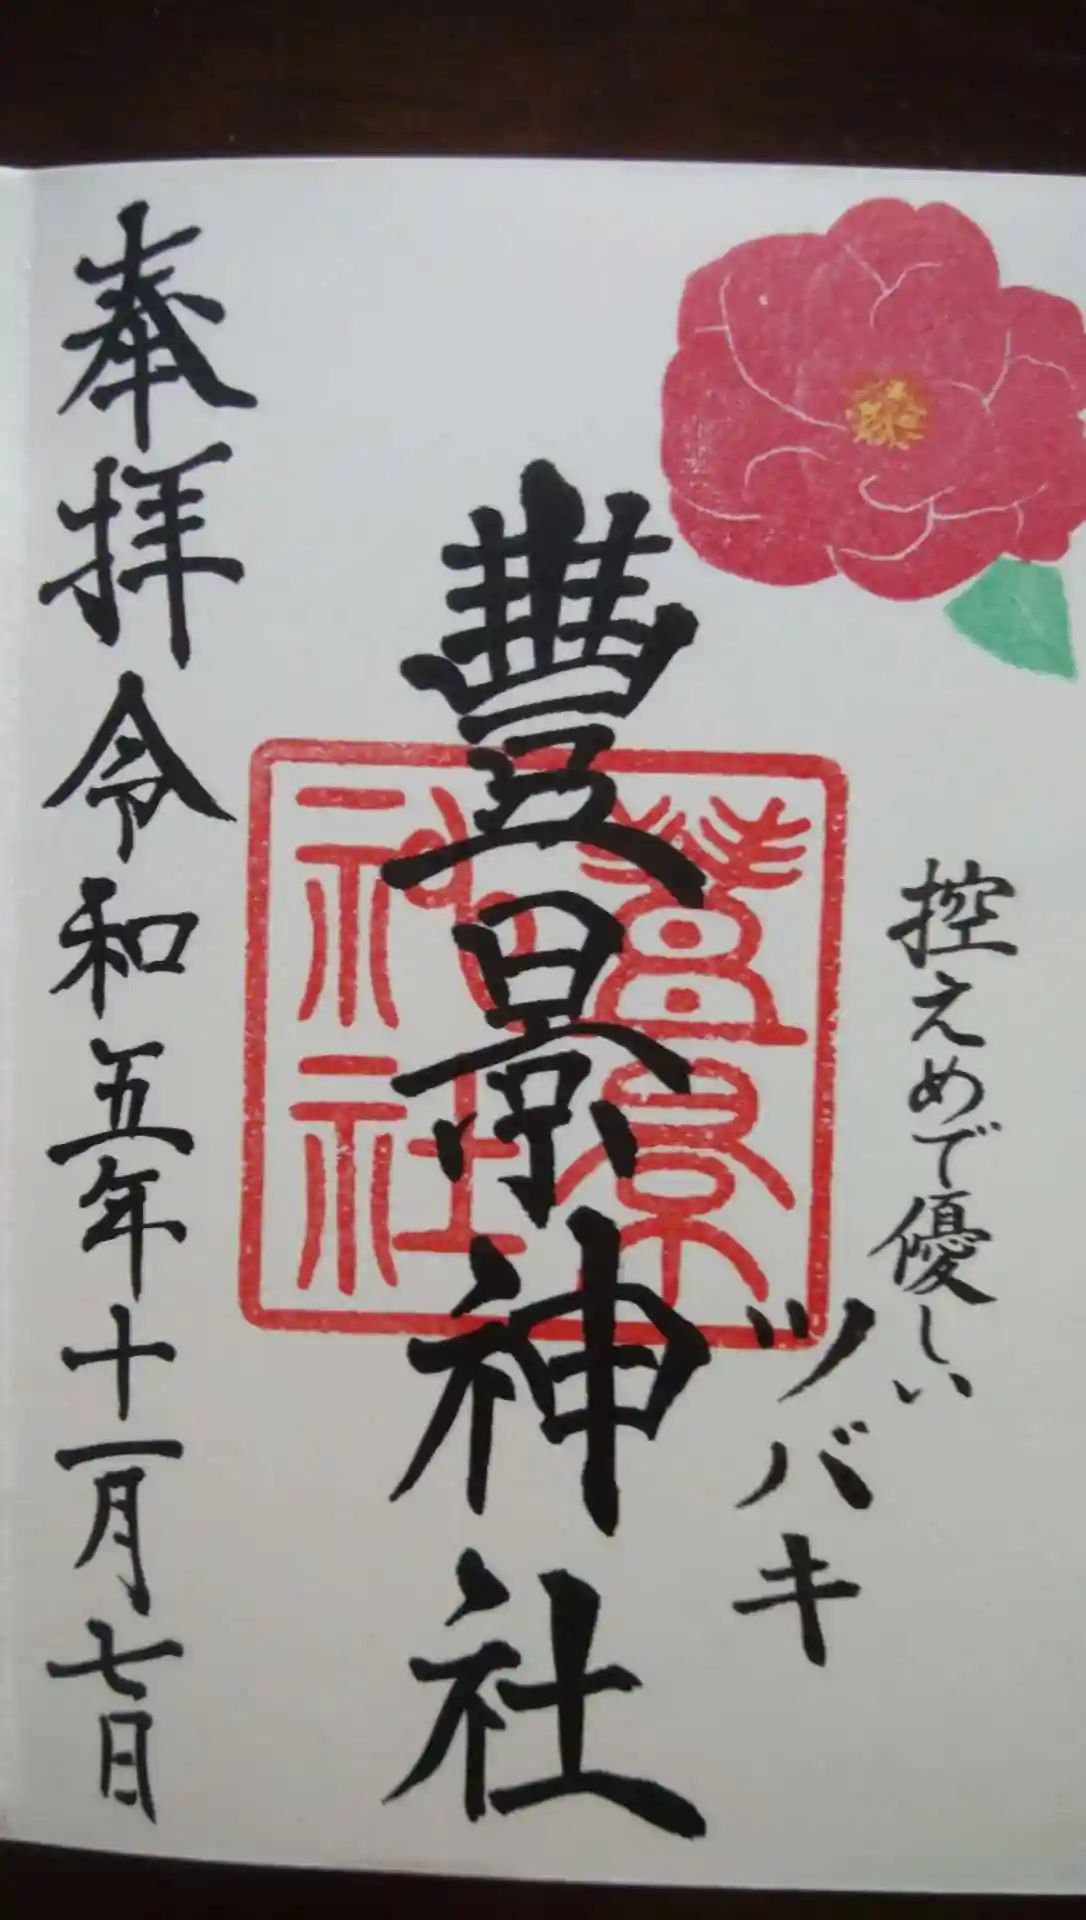 控えめで優しい
ツバキ
豐景神社
豐景
神社
奉拝 令和五年十一月七日